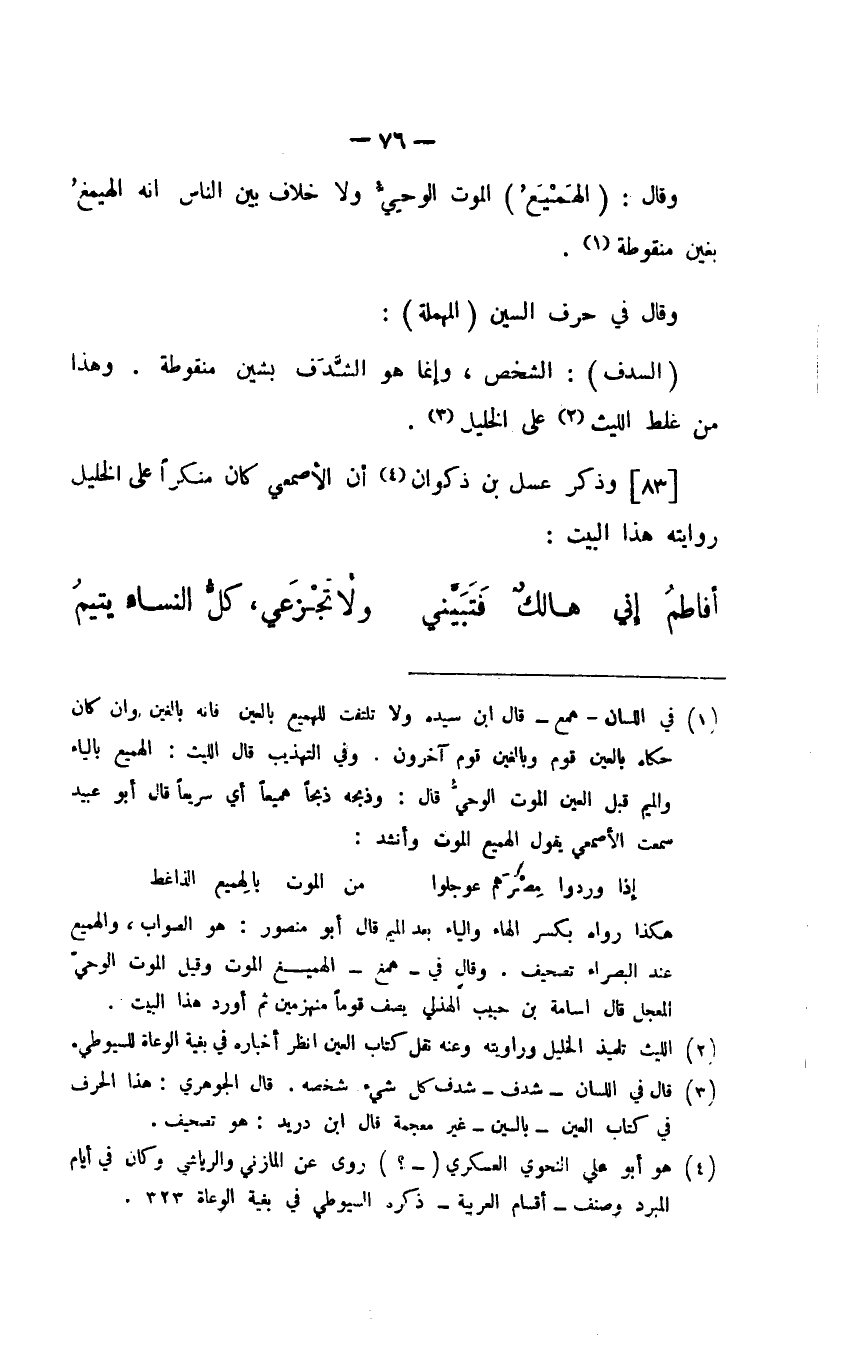 — ٧٦ —
وقال : ( الهَمْيَع' ) الموت الوحيّ ولا خلاف بين الناس انه الهيمغ'
بغين منقوطة (١) .
وقال في حرف السين ( المهملة ) :
( السدف ) : الشخص ، وإنما هو الشَّدَف بشين منقوطة . وهذا
من غلط الليث (٢) على الخليل (٣) .
[٨٣] وذكر عسل بن ذكوان (٤) أن الأصمعي كان منكراً على الخليل
روايته هذا البيت :
أفاطمُ إني هالكٌ فَتَبَيَّني ولا تَجْزَعي، كلُّ النساء يتيمُ
(١) في اللسان - همع - قال ابن سيده ولا تلتفت للهميع بالعين فانه بالغين وان كان
حكاه بالعين قوم وبالغين قوم آخرون . وفي التهذيب قال الليث : الهميع بالياء
والميم قبل العين الموت الوحيّ قال : وذبحه ذبحاً هميعاً أي سريعاً قال أبو عبيد
سمعت الأصمعي يقول الهميع الموت وأنشد :
إذا وردوا مِصْرَهم عوجلوا من الموت بالهِميع الذاغط
هكذا رواه بكسر الهاء والياء بعد الميم قال أبو منصور : هو الصواب ، والهميع
عند البصراء تصحيف . وقال في - همغ - الهميـغ الموت وقيل الموت الوحيّ
المعجل قال اسامة بن حبيب الهذلي يصف قوماً منهزمين ثم أورد هذا البيت .
(٢) الليث تلميذ الخليل وراويته وعنه نقل كتاب العين انظر أخباره في بغية الوعاة للسيوطي.
(٣) قال في اللسان - شدف - شدف كل شيء شخصه . قال الجوهري : هذا الحرف
في كتاب العين - بالسين - غير معجمة قال ابن دريد : هو تصحيف .
(٤) هو أبو علي النحوي العسكري ( - ؟ ) روى عن المازني والرياشي وكان في أيام
المبرد وصنف - أقسام العربية - ذكره السيوطي في بغية الوعاة ٣٢٣ .